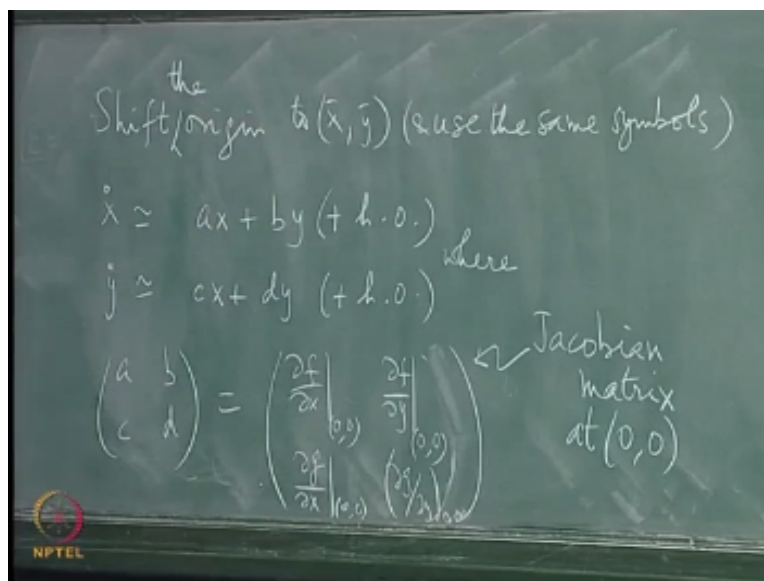 the
Shift origin to (x̄, ȳ) (& use the same symbols)
ẋ ≃ ax + by (+ h.o.)
where
ẏ ≃ cx + dy (+ h.o.)
(a b
c d) = (∂f/∂x|(0,0) ∂f/∂y|(0,0)
∂g/∂x|(0,0) (∂g/∂y)(0,0))
Jacobian
matrix
at (0,0)
NPTEL